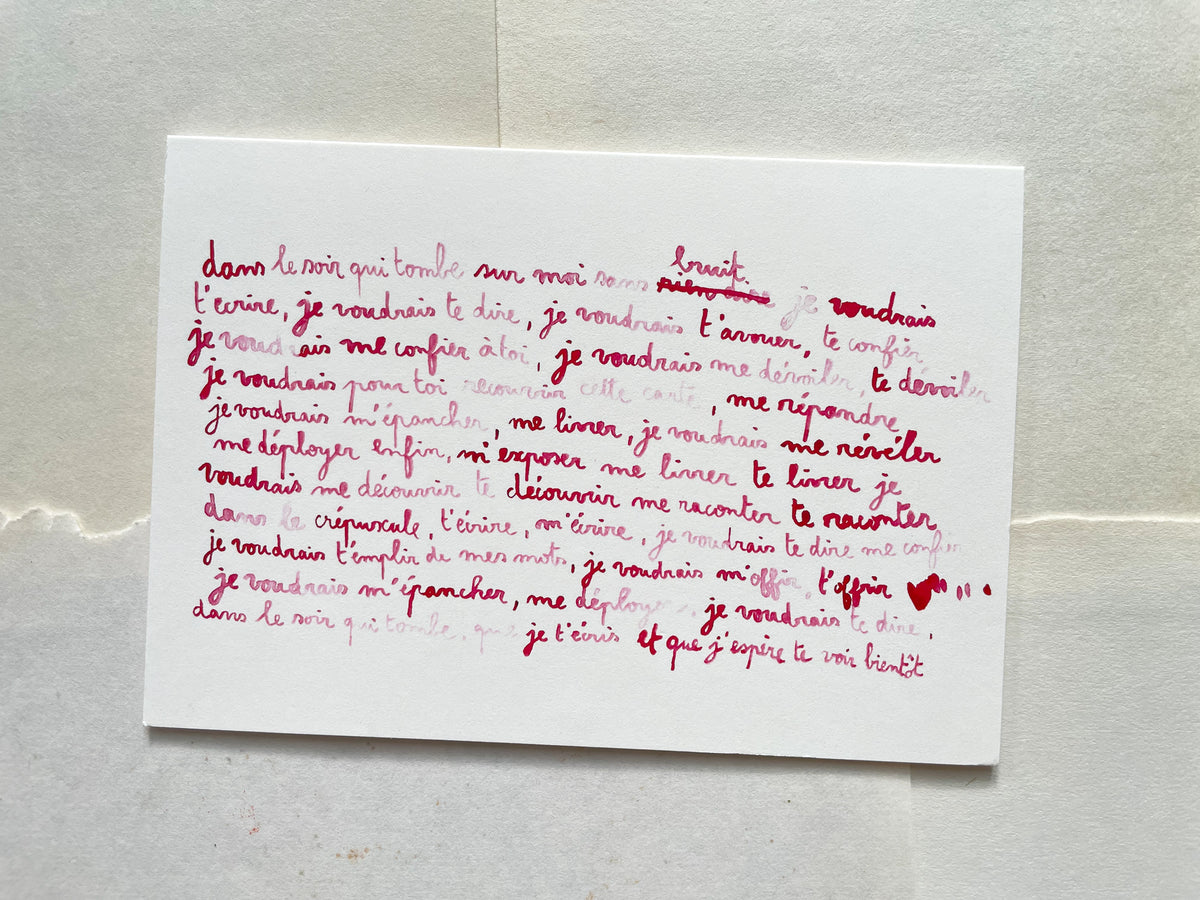 dans le soir qui tombe sur moi sans bruit je voudrais
t'écrire, je voudrais te dire, je voudrais t'avouer, te confier
je voudrais me confier à toi, je voudrais me dévoiler, te dévoiler
je voudrais pour toi recouvrir cette carte, me répandre
je voudrais m'épancher, me livrer, je voudrais me révéler
me déployer enfin, m'exposer me livrer te livrer je
voudrais me découvrir te découvrir me raconter te raconter,
dans le crépuscule, t'écrire, m'écrire, je voudrais te dire me confier
je voudrais t'emplir de mes mots, je voudrais m'offrir, t'offrir
je voudrais m'épancher, me déployer, je voudrais te dire,
dans le soir qui tombe, que je t'écris et que j'espère te voir bientôt